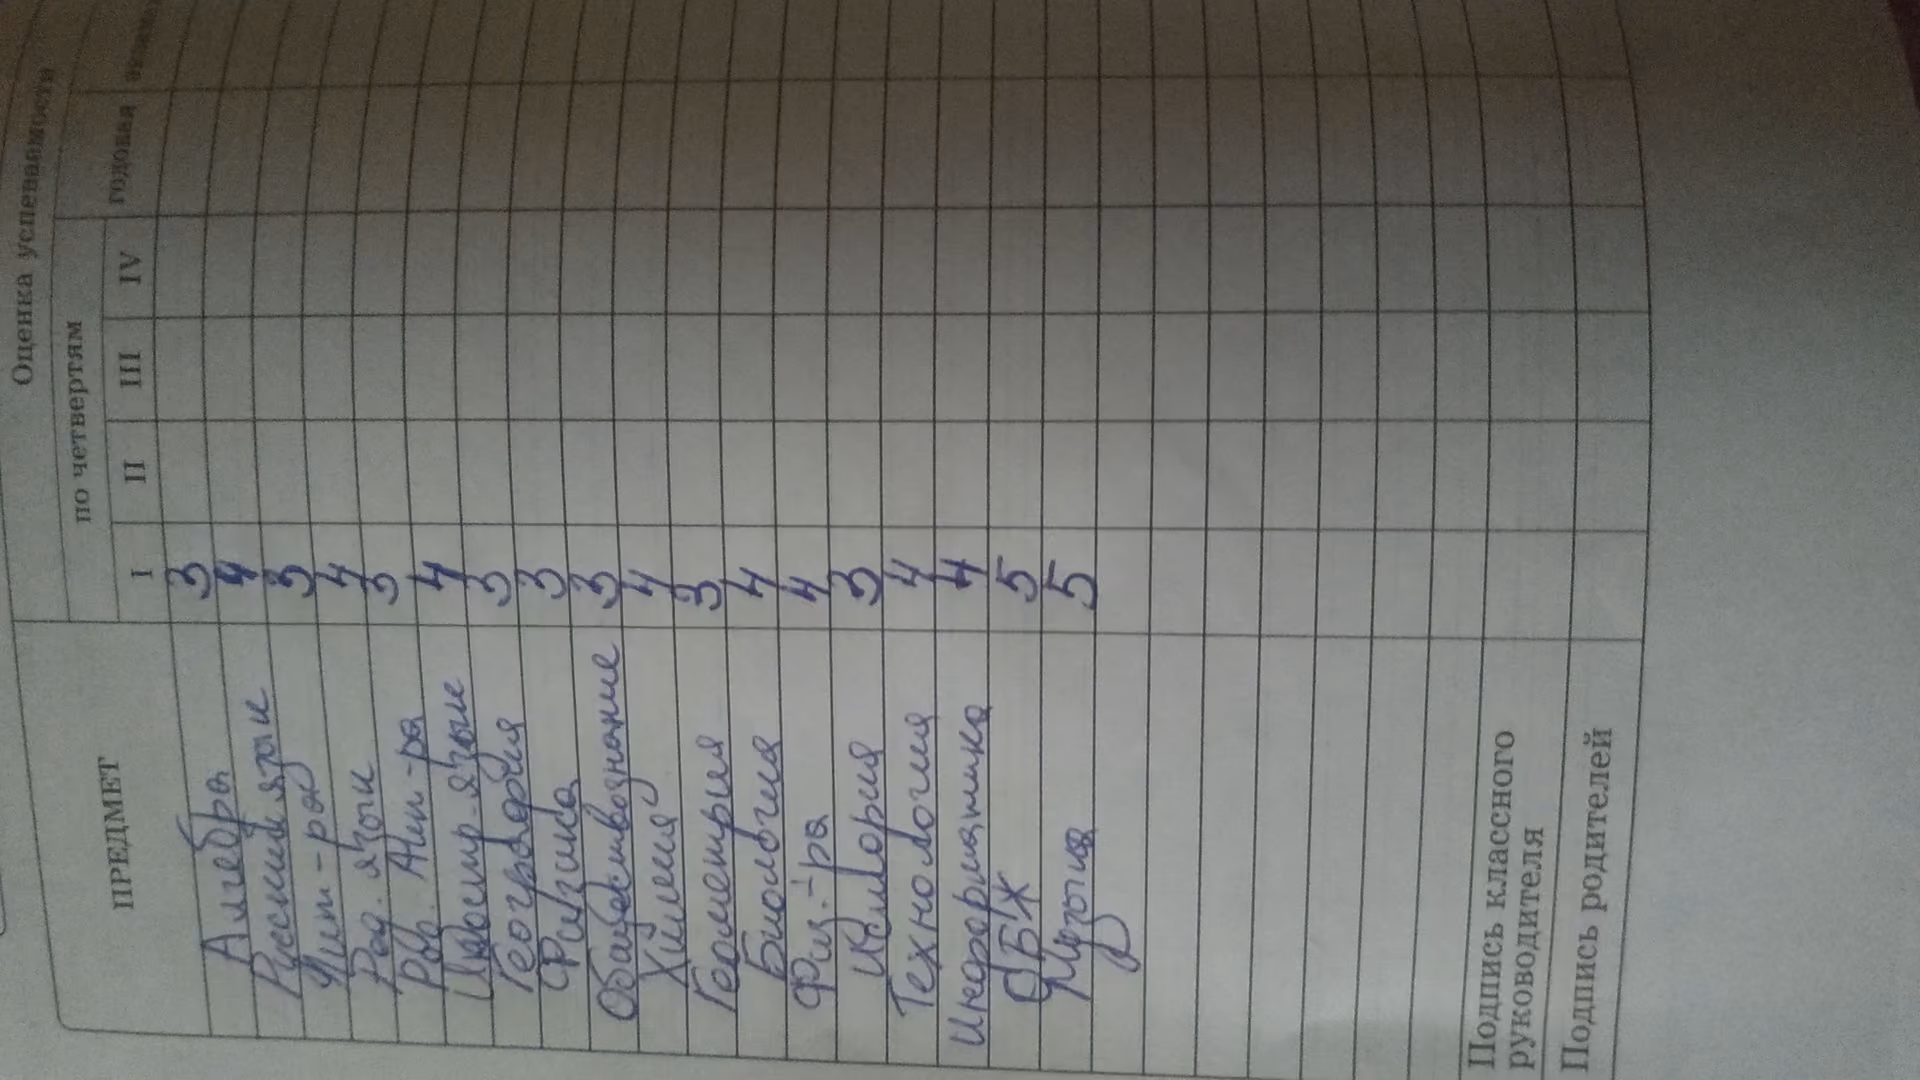 Оценка успеваемости
ПРЕДМЕТ
по четвертям
годовая
I II III IV
Алгебра 3
Русский язык 4
Лит-ра 3
Род. язык 4
Род. Лит-ра 3
Иностр. язык 4
География 3
Физика 3
Обществознание 3
Химия 4
Геометрия 3
Биология 4
Физ.-ра 4
История 3
Технология 4
Информатика 4
ОБЖ 5
Музыка 5
Подпись классного
руководителя
Подпись родителей